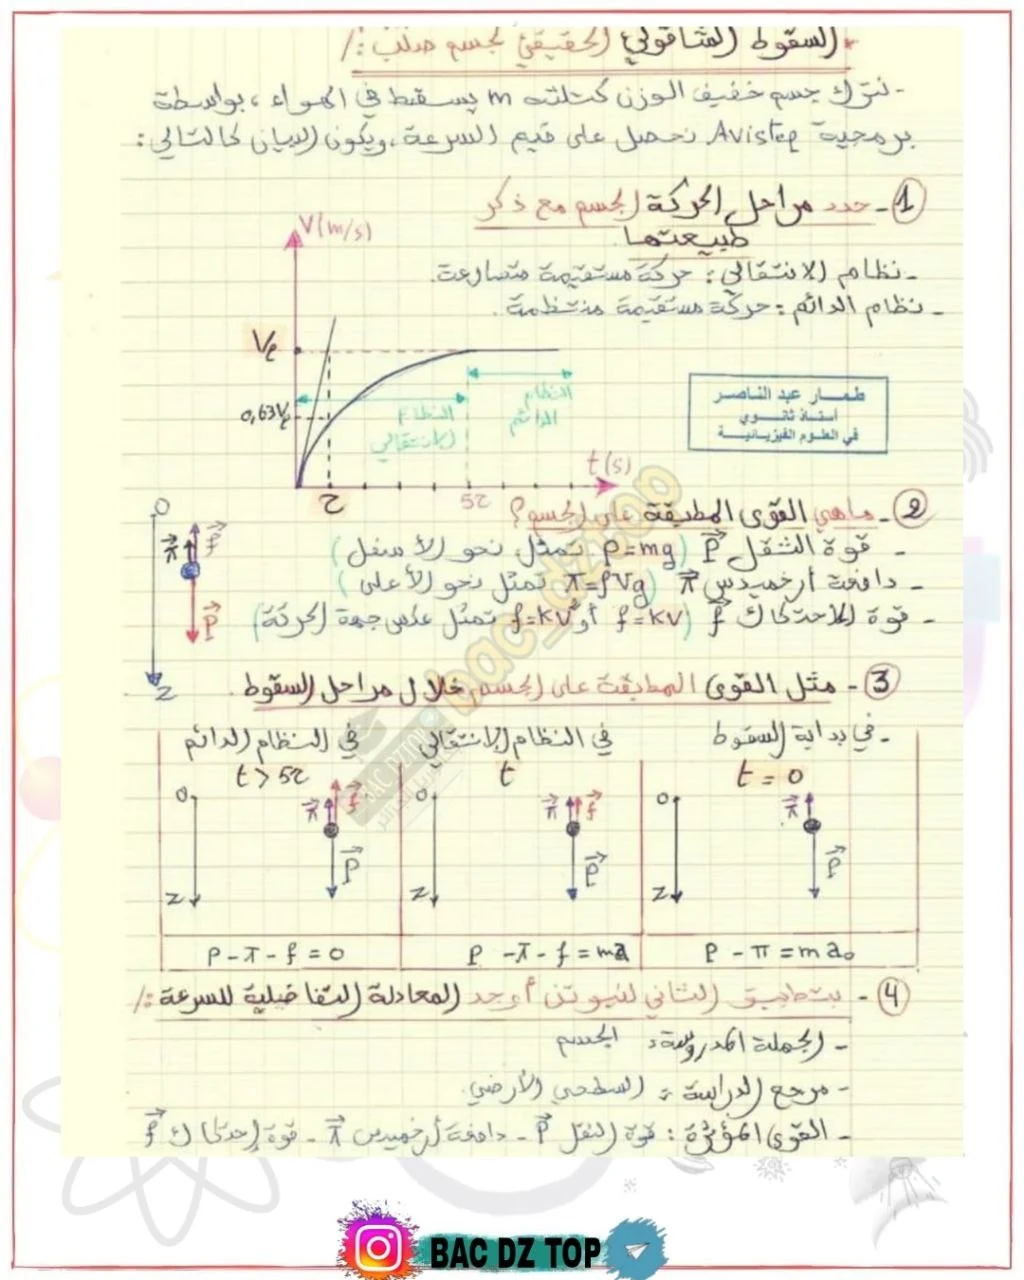 * السقوط الشاقولي الحقيقي لجسم صلب :/
- نترك جسم خفيف الوزن كتلته m يسقط في الهواء ، بواسطة
برمجية Avistep نحصل على قيم السرعة ، ويكون البيان كالتالي :
1 - حدد مراحل الحركة الجسم مع ذكر
طبيعتها .
- نظام الانتقالي : حركة مستقيمة متسارعة .
- نظام الدائم : حركة مستقيمة منتظمة .
V(m/s)
Vℓ
0,63Vℓ
النظام الانتقالي
النظام الدائم
t(s)
τ
5τ
طمار عبد الناصر
أستاذ ثانوي
في العلوم الفيزيائية
2 - ماهي القوى المطبقة على الجسم ؟
- قوة الثقل P⃗ (P=mg تمثل نحو الأسفل)
- دافعة أرخميدس π⃗ (π=ρVg تمثل نحو الأعلى)
- قوة الاحتكاك f⃗ (f=kv أو f=kv² تمثل عكس جهة الحركة)
O
π⃗ f⃗
P⃗
Z
3 - مثل القوى المطبقة على الجسم خلال مراحل السقوط .
- في بداية السقوط
t = 0
O
π⃗
P⃗
Z
P - π = ma₀
في النظام الانتقالي
t
O
π⃗ f⃗
P⃗
Z
P - π - f = ma
في النظام الدائم
t > 5τ
O
π⃗ f⃗
P⃗
Z
P - π - f = 0
4 - بتطبيق الثاني لنيوتن أوجد المعادلة التفاضلية للسرعة :/
- الجملة المدروسة : الجسم
- مرجع الدراسة : السطحي الأرضي .
- القوى المؤثرة : قوة الثقل P⃗ - دافعة أرخميدس π⃗ - قوة إحتكاك f⃗
bac_dztop
BAC DZ TOP
BAC DZ TOP